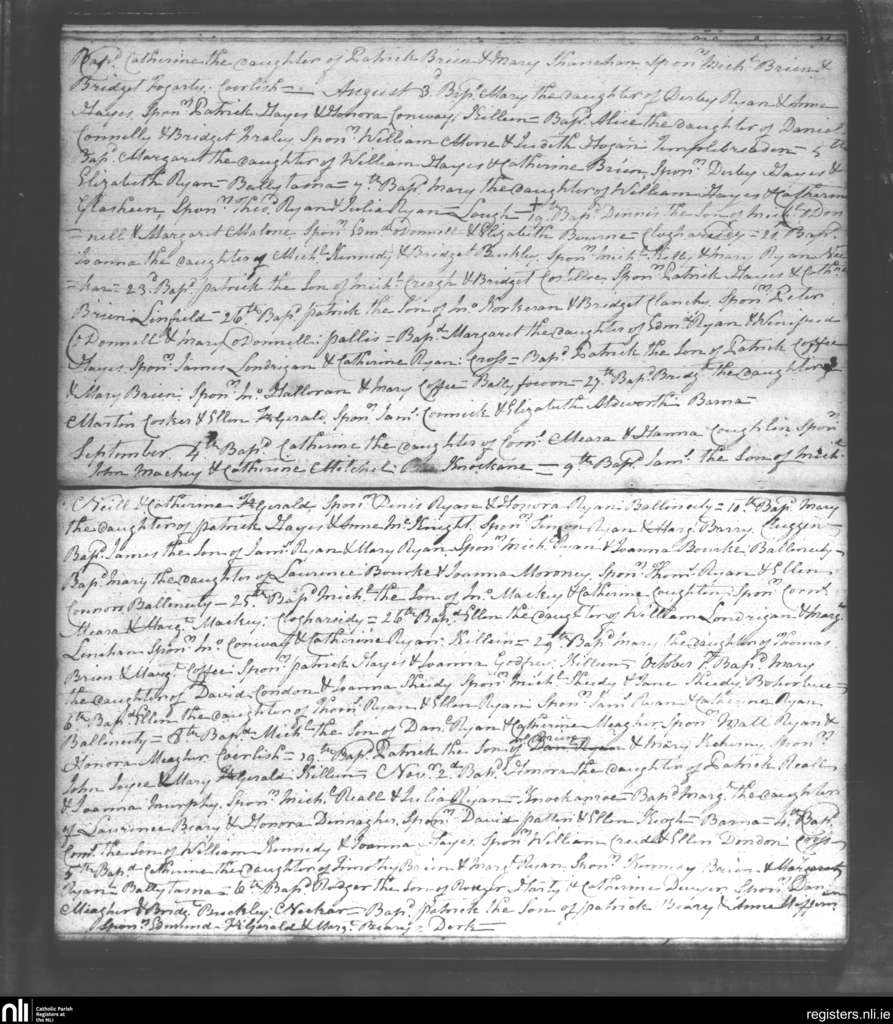 Bap.d Catherine the daughter of Patrick Brien & Mary Shanahan. Spon.rs Mich.l Brien &
Bridget Fogarty. Coerlish = August 3.d Bap.d Mary the daughter of Derby Ryan & Anne
Hayes. Spon.rs Patrick Hayes & Honora Conway. Killeen = Bap.d Alice the daughter of Daniel
Connells & Bridget Spon.rs William & Judith Hogan. Templebredon = 5.th
Bap.d Margaret the daughter of William Hayes & Catherine Brien, Spon.rs Derby Hayes &
Elizabeth Ryan = Ballytarna = 7.th Bap.d Mary the daughter of William Hayes & Catherin
Glasheen, Spon.rs Ryan & Julia Ryan = Lough = 19.th Bap.d Dennis the Son of Mich.l O Don
= nell & Margaret Malone. Spon.rs Edm.d O Donnell & Elizabeth Bourne = Cloghareidy = Bap.d
Joanna the daughter of Mich.l Kennedy & Bridget Buckley. Spon.rs Mich.l Kelly & Mary Ryan
= har = 23.d Bap.d patrick the Son of Mich.l Creagh & Bridget Spon.rs Patrick & Cath
Brien Linfield = 26.th Bap.d patrick the Son of Jn.o Korkeran & Bridget Clanchy. Spon.rs Peter
O Donnell & Mary O Donnell: pallis = Bap.d Margaret the daughter of Edm.d Ryan & Winifred
Hayes Spon.rs James Londrigan & Catherine Ryan: Cross = Bap.d Patrick the Son of Patrick Coffee
& Mary Brien: Spon.rs Jn.o Halloran & Mary Coffee = = 27.th Bap.d Bridg.t the daughter of
Martin Cosker & Ellen Fz.Gerald. Spon.rs Jam.s Cormick & Elizabeth Aldworth: Barna =
September. 4.th Bap.d Catherine the daughter of Corn.s Meara & Hanna Coughlin. Spon.rs
John Mackey & Catherine Mitchel: Knockane = 9.th Bap.d Jam.s the Son of Mich.l
Neill & Catherine Fz.Gerald. Spon.rs Denis Ryan & Honora Ryan: Ballineety = 10.th Bap.d Mary
the daughter of patrick Hayes & Anne Mc.Knight. Spon.rs Simon Ryan & Marg.t Barry.
Bap.d James the Son of Jam.s Ryan & Mary Ryan. Spon.rs Mich.l Ryan & Joanna Bourke. Ballineety =
Bap.d Mary the daughter of Laurence Bourke & Joanna Moroney. Spon.rs Thom.s Ryan & Ellen
Connors Ballineety = 25.th Bap.d Mich.l the Son of Jn.o Mackey & Catherine Coughlen. Spon.rs Corn.s
Meara & Marg.t Mackey: Cloghareidy = 26.th Bap.d Ellen the daughter of William Londrigan & Marg.t
Linehan Spon.rs Jn.o Conway & Catherine Ryan: Killeen = 29.th Bap.d Mary the daughter of Thomas
Brien & Marg.t Coffee: Spon.rs patrick Hayes & Joanna Godfrey. Killeen = October 1.st Bap.d Mary
the daughter of David Condon & Joanna Sheedy Spon.rs Mich.l Sheedy & Anne Sheedy.
6.th Bap.d Ellen the daughter of Thom.s Ryan & Ellen Ryan: Spon.rs Jam.s Ryan & Catherine Ryan
Ballineety = 8.th Bap.d Mich.l the Son of Dan.l Ryan & Catherine Meagher. Spon.rs Wall Ryan &
Honora Meagher. Coerlish = 19.th Bap.d Patrick the Son of Jn.o Brien Dan.l Ryan & Mary Spon.rs
John Joyce & Mary Fz.Gerald: Killeen = Nov.r 2.d Bap.d Honora the daughter of Patrick Reall
& Joanna Murphy. Spon.rs Mich.l Reall & Julia Ryan = = Bap.d Marg.t the daughter
of Laurence Beary & Honora Donnagher. Spon.rs David patten & Ellen Keogh = Barna = 4.th Bap.d
Corn.s the Son of William Kennedy & Joanna Hayes. Spon.rs William Creed & Ellen Dondon. Cross
5.th Bap.d Catherine the daughter of Timothy Brien & Marg.t Ryan Spon.rs Kennedy Brien & Margaret
Ryan = Ballytarna = 6.th Bap.d Rodger the Son of Rodger Harty & Catherine Dwyer. Spon.rs Dan.l
Meagher & Bridg.t Buckley. = Bap.d patrick the Son of patrick Beary & Anne
Spon.rs Edmund Fz.Gerald & Marg.t Beary = Derk =
nli
Catholic Parish
Registers at
the NLI
registers.nli.ie